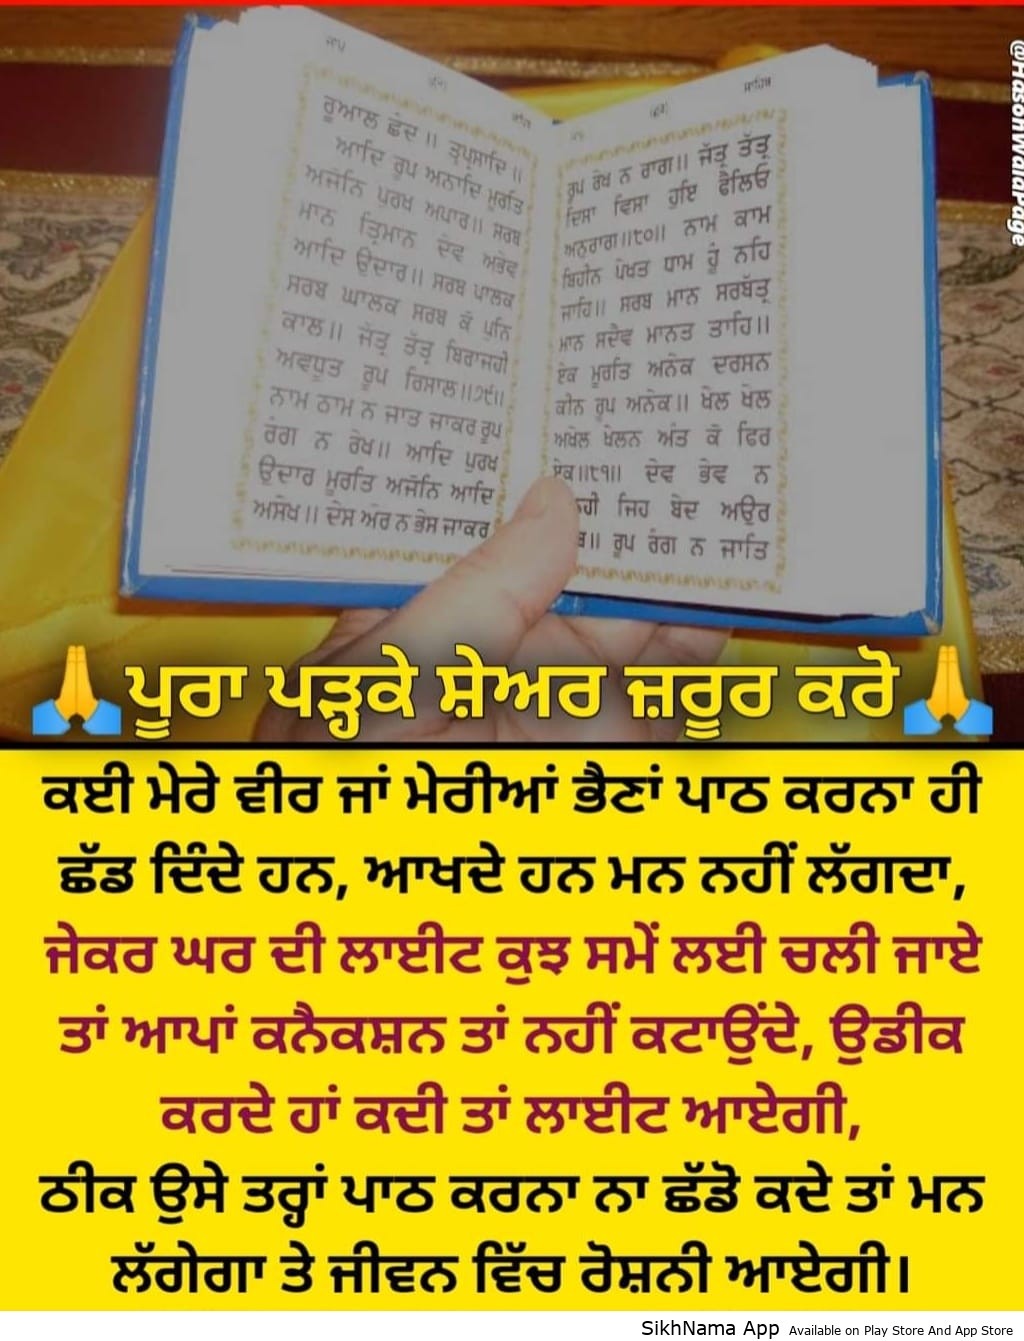 ਜਾਪ
(੬੧)
ਰੂਆਲ ਛੰਦ ॥ ਤ੍ਵਪ੍ਰਸਾਦਿ ॥
ਆਦਿ ਰੂਪ ਅਨਾਦਿ ਮੂਰਤਿ
ਅਜੋਨਿ ਪੁਰਖ ਅਪਾਰ॥ ਸਰਬ
ਮਾਨ ਤ੍ਰਿਮਾਨ ਦੇਵ ਅਭੇਵ
ਆਦਿ ਉਦਾਰ॥ ਸਰਬ ਪਾਲਕ
ਸਰਬ ਘਾਲਕ ਸਰਬ ਕੋ ਪੁਨਿ
ਕਾਲ॥ ਜੱਤ੍ਰ ਤੱਤ੍ਰ ਬਿਰਾਜਹੀ
ਅਵਧੂਤ ਰੂਪ ਰਿਸਾਲ॥੭੯॥
ਨਾਮ ਠਾਮ ਨ ਜਾਤ ਜਾਕਰ ਰੂਪ
ਰੰਗ ਨ ਰੇਖ॥ ਆਦਿ ਪੁਰਖ
ਉਦਾਰ ਮੂਰਤਿ ਅਜੋਨਿ ਆਦਿ
ਅਸੇਖ॥ ਦੇਸ ਅੰਰ ਨ ਭੇਸ ਜਾਕਰ
ਸਾਹਿਬ
(੬੨)
ਰੂਪ ਰੇਖ ਨ ਰਾਗ॥ ਜੱਤ੍ਰ ਤੱਤ੍ਰ
ਦਿਸਾ ਵਿਸਾ ਹੁਇ ਫੈਲਿਓ
ਅਨੁਰਾਗ॥੮੦॥ ਨਾਮ ਕਾਮ
ਬਿਹੀਨ ਪੇਖਤ ਧਾਮ ਹੂੰ ਨਹਿ
ਜਾਹਿ॥ ਸਰਬ ਮਾਨ ਸਰਬੱਤ੍ਰ
ਮਾਨ ਸਦੈਵ ਮਾਨਤ ਤਾਹਿ॥
ਏਕ ਮੂਰਤਿ ਅਨੇਕ ਦਰਸਨ
ਕੀਨ ਰੂਪ ਅਨੇਕ॥ ਖੇਲ ਖੇਲ
ਅਖੇਲ ਖੇਲਨ ਅੰਤ ਕੋ ਫਿਰ
ਏਕ॥੮੧॥ ਦੇਵ ਭੇਵ ਨ
ਹੀ ਜਿਹ ਬੇਦ ਅਉਰ
॥ ਰੂਪ ਰੰਗ ਨ ਜਾਤਿ
@HassonWalaPage
🙏ਪੂਰਾ ਪੜ੍ਹਕੇ ਸ਼ੇਅਰ ਜ਼ਰੂਰ ਕਰੋ🙏
ਕਈ ਮੇਰੇ ਵੀਰ ਜਾਂ ਮੇਰੀਆਂ ਭੈਣਾਂ ਪਾਠ ਕਰਨਾ ਹੀ
ਛੱਡ ਦਿੰਦੇ ਹਨ, ਆਖਦੇ ਹਨ ਮਨ ਨਹੀਂ ਲੱਗਦਾ,
ਜੇਕਰ ਘਰ ਦੀ ਲਾਈਟ ਕੁਝ ਸਮੇਂ ਲਈ ਚਲੀ ਜਾਏ
ਤਾਂ ਆਪਾਂ ਕਨੈਕਸ਼ਨ ਤਾਂ ਨਹੀਂ ਕਟਾਉਂਦੇ, ਉਡੀਕ
ਕਰਦੇ ਹਾਂ ਕਦੀ ਤਾਂ ਲਾਈਟ ਆਏਗੀ,
ਠੀਕ ਉਸੇ ਤਰ੍ਹਾਂ ਪਾਠ ਕਰਨਾ ਨਾ ਛੱਡੋ ਕਦੇ ਤਾਂ ਮਨ
ਲੱਗੇਗਾ ਤੇ ਜੀਵਨ ਵਿੱਚ ਰੋਸ਼ਨੀ ਆਏਗੀ।
SikhNama App Available on Play Store And App Store